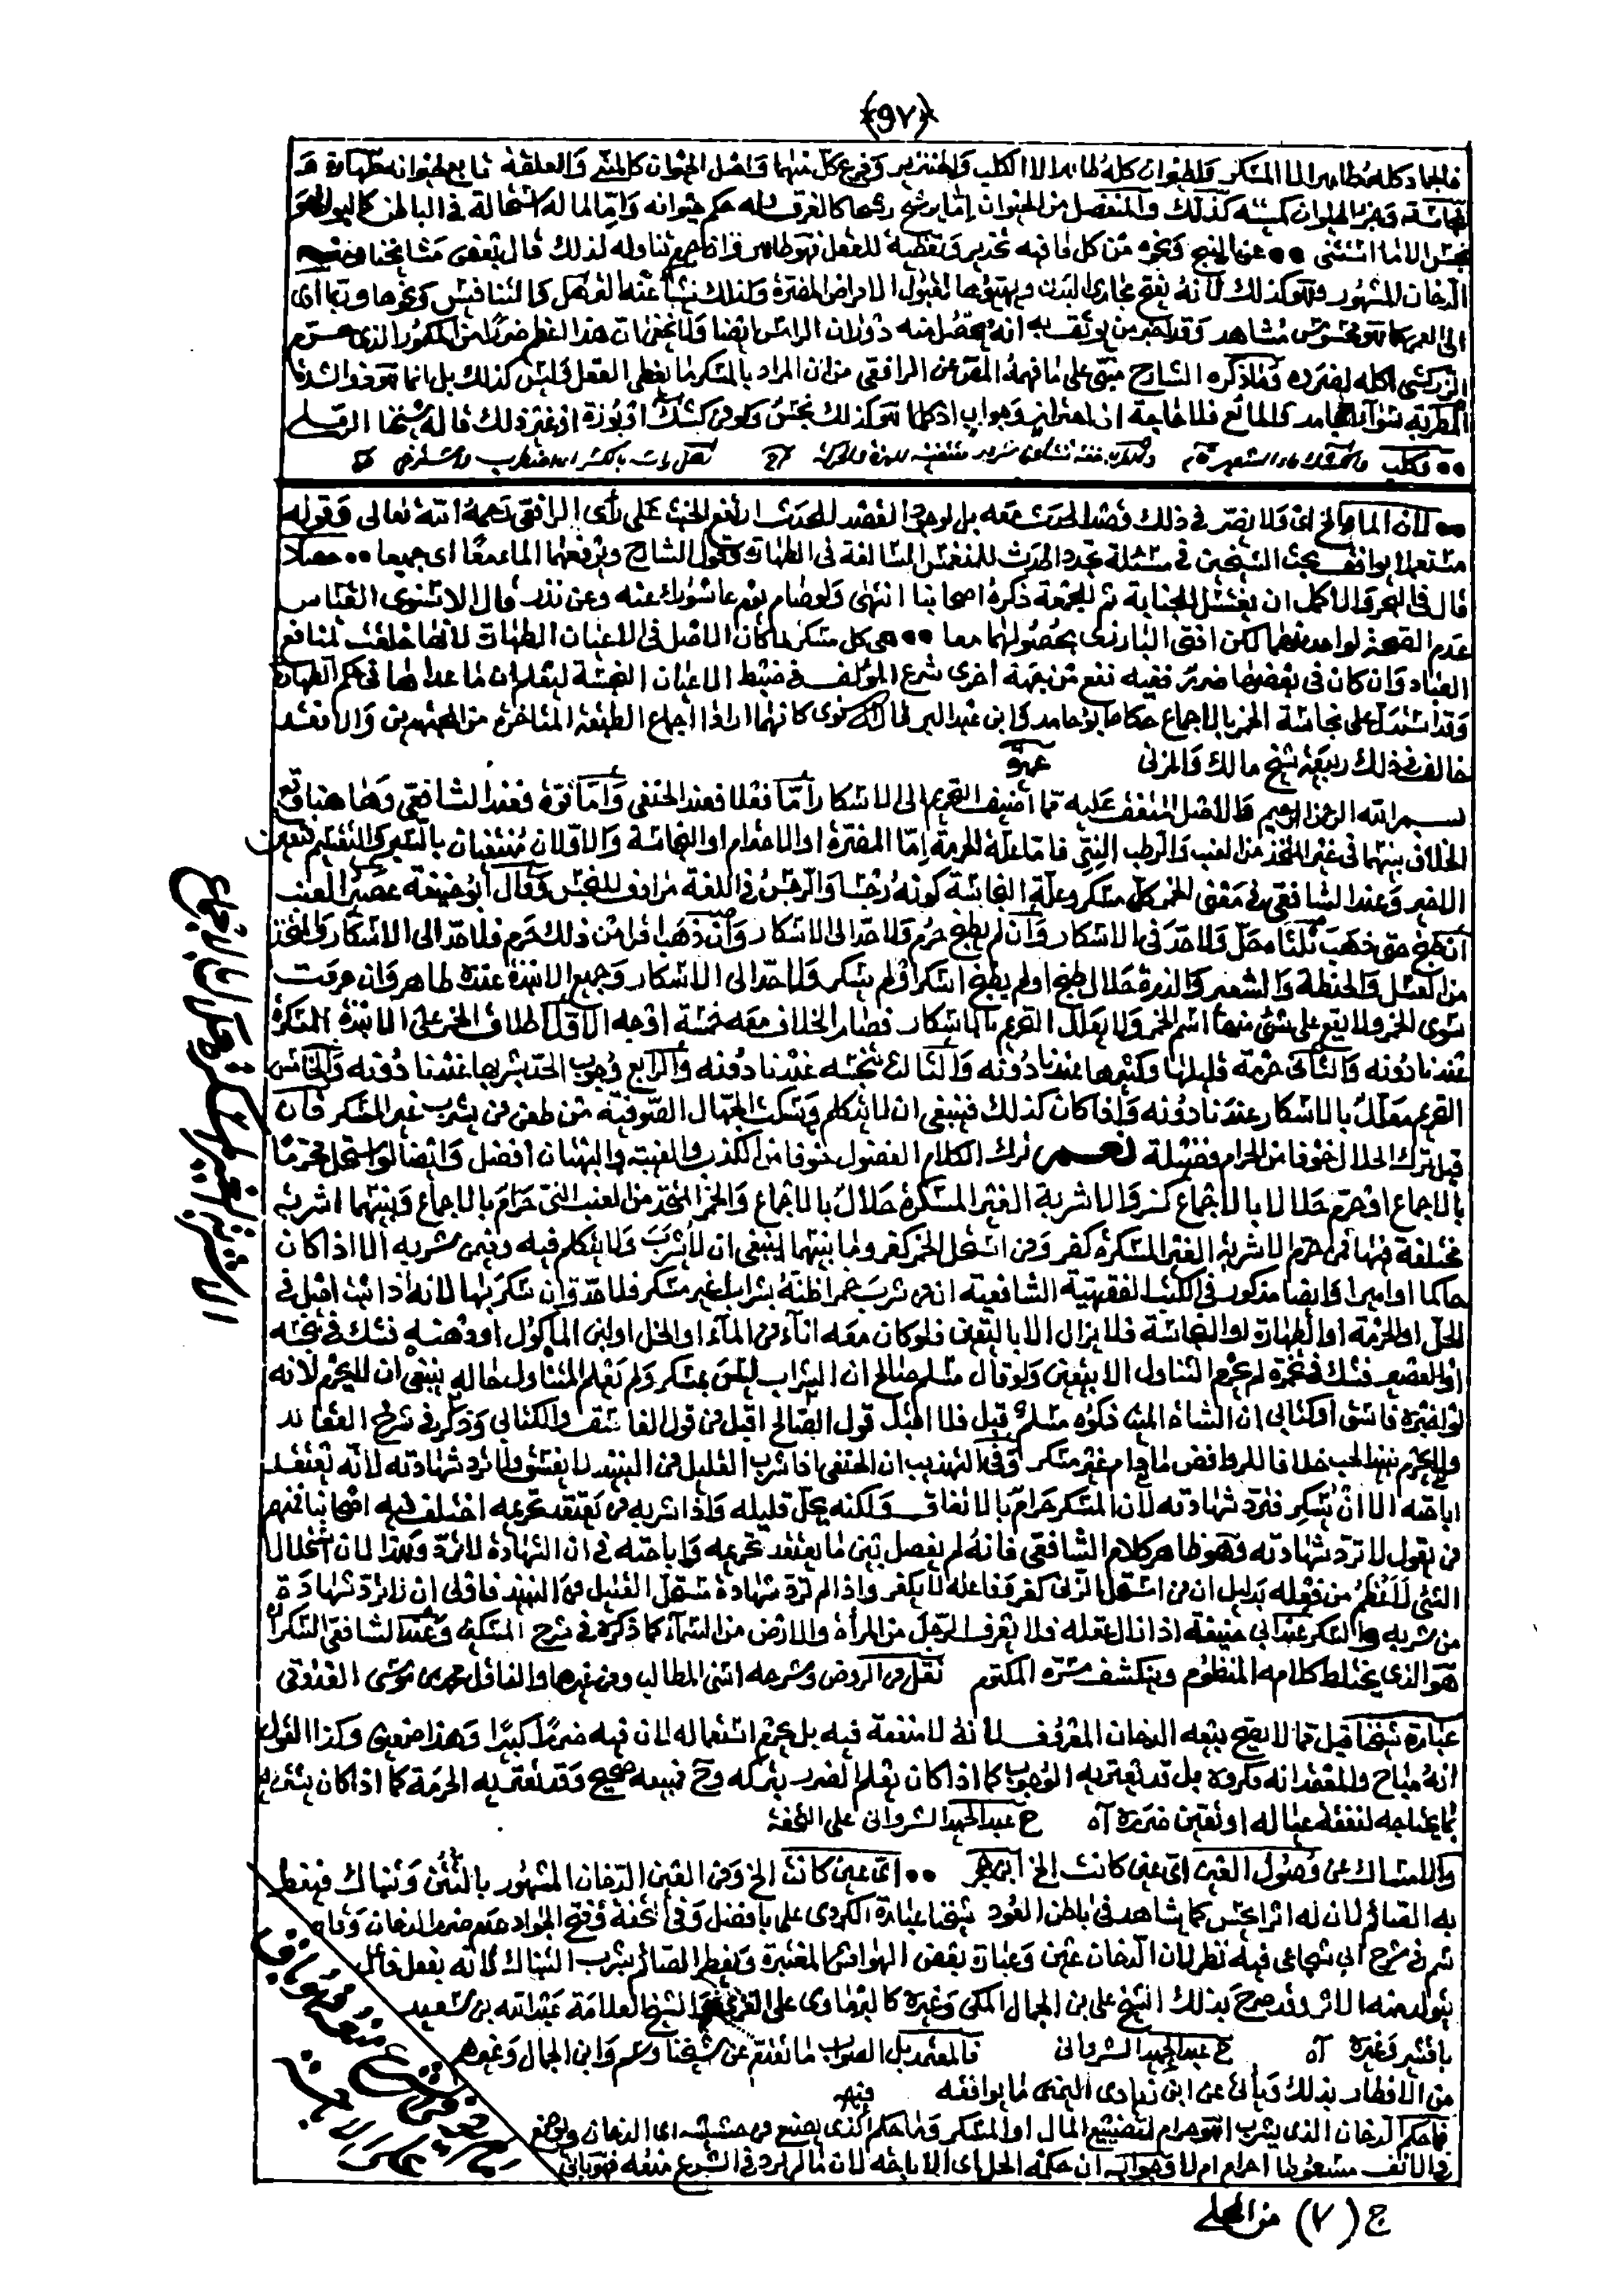 ﴿٩٧﴾
فالجماد كله طاهر الا المسكر والحيوان كله طاهر الا الكلب والخنزير وفرع كل منهما واصل الحيوان كالمني والعلقة تابع لحيوانه طهارة و
نجاسة وجزء الحيوان كميتته كذلك والمنفصل من الحيوان اما يرشح رشحا كالعرق فله حكم حيوانه واما ماله استحالة في الباطن كالبول فهو
نجس الا ما استثنى عن البنج ونحوه من كل ما فيه تخدير وتغطية للعقل فهو طاهر وان حرم تناوله لذلك قال بعض مشايخنا ومنه
الدخان المشهور وهو كذلك لانه يفتح مجاري البدن ويهيئها لقبول الامراض المضرة ولذلك ينشأ عنه الترهل والتنافيس ونحوها وربما ادى
الى العمى كما هو محسوس مشاهد وقد اخبر من يوثق به انه يحصل منه دوران الراس ايضا ولا يخفى ان هذا اعظم ضررا من المكمور الذي حرم
الزركشي اكله لضرره وما ذكره الشارح مبني على ما فهمه المقر عن الرافعي من ان المراد بالمسكر ما يغطي العقل وليس كذلك بل انما هو ذو الشدة
المطربة سواء الجامد والمائع فلا حاجة الى اعتراض وجواب اذ كلما هو كذلك نجس ولو من كشك او بوزة او غير ذلك قاله شيخنا الرملي
لان الماء الخ اي ولا يضر في ذلك قصد الحدث معه بل لوجود القصد للحدث ارتفع الخبث على رأي الرافعي رحمه الله تعالى وقوله
مستعملا يوافق بحث الشيخين في مسئلة تجدد الحدث للمنغمس السالفة في الطهارة وقول الشارح ويرفعهما الماء معا اي جميعا حصلا
قال في البحر والاكمل ان يغتسل للجنابة ثم للجمعة ذكره اصحابنا انتهى ولو صام يوم عاشوراء عنه وعن نذر قال الاسنوي القياس
عدم الصحة لواحد منهما لكن افتى البارزي بحصولهما معا هي كل مسكر لما كان الاصل في الاعيان الطهارة لانها خلقت لمنافع
العباد وان كان في بعضها ضرر ففيه نفع من جهة اخرى شرع المؤلف في ضبط الاعيان النجسة ليعلم ان ما عداها في حكم الطهارة
وقد استدل على نجاسة الخمر بالاجماع حكاه ابو حامد وابن عبد البر كانهما ارادا اجماع الطبقة المتاخرة من المجتهدين والا فقد
خالف في ذلك ربيعة شيخ مالك والمزني
بسم الله الرحمن الرحيم والاصل المتفق عليه مما اضيف التحريم الى الاسكار اما فعلا فعند الحنفي واما قوة فعند الشافعي وها هنا وقع
الخلاف بينهما في غير المتخذ من العنب والرطب النيئ فاما علة الحرمة اما المضرة او الاحترام او النجاسة والاولان منتفيان بالسبر والتقسيم فتعين
الاخير وعند الشافعي في معنى الخمر كل مسكر وعلة النجاسة كونه رجسا والرجس في اللغة مرادف للنجس وقال ابو حنيفة عصير العنب
ان طبخ حتى ذهب ثلثاه حل ولا حد في الاسكار وان لم يطبخ حرم ولا حد الى الاسكار وان ذهب اقل من ذلك حرم فلا حد الى الاسكار والمتخذ
من العسل والحنطة والشعير والذرة حلال طبخ او لم يطبخ اسكر او لم يسكر ولا حد الى الاسكار وجميع الانبذة عنده طاهر وان حرمت
سوى الخمر ولا يقع على شئ منها اسم الخمر ولا يعلل التحريم بالاسكار فصار الخلاف معه خمسة اوجه الاول اطلاق الخمر على الانبذة المسكرة
عندنا دونه والثاني حرمة قليلها وكثيرها عندنا دونه والثالث نجسه عندنا دونه والرابع وجوب الحد بشربها عندنا دونه والخامس
التحريم معلل بالاسكار عندنا دونه واذا كان كذلك فينبغي ان لا يتكلم ويسكت الجهال الصوفية من طعن من يشرب غير المسكر فان
قيل ترك الحلال خوفا من الحرام فضيلة نعم ترك الكلام الفضول خوفا من الكذب والغيبة والبهتان افضل وايضا لو استحل محرما
بالاجماع او حرم حلالا بالاجماع كفر والاشربة الغير المسكرة حلال بالاجماع والخمر المتخذ من العنب النئ حرام بالاجماع وبينهما اشربة
مختلفة فيها فمن حرم الاشربة الغير المسكرة كفر ومن استحل الخمر كفر وما بينهما ينبغي ان لا يشرب ولا يتكلم فيه وفيمن شربه الا اذا كان
حاكما او اميرا وايضا مذكور في الكتب الفقهية الشافعية ان من شرب خمرا ظنه شرابا غير مسكر فلا حد وان سكر بها لانه اذا ثبت اصل في
الحل او الحرمة او الطهارة او النجاسة فلا يزال الا باليقين فلو كان معه اناء من الماء او الخل او لبن المأكول او دهنه فشك في نجسه
او العصير فشك في تخمره لم يحرم التناول الا بيقين ولو قال مسلم صالح ان الشراب ليس بمسكر ولم يعلم المتناول حاله ينبغي ان لا يحرم لانه
لو اخبره فاسق او كتابي ان الشاة المبيتة ذكوه مسلم قبل فلا اهمل قول الصالح اقبل من قول الفاسق والكتابي وذكر في شرح العقائد
ولا يحرم نبيذ الحب خلافا للروافض ما دام غير مسكر وفي التهذيب ان الحنفي اذا شرب القليل من النبيذ لا يفسق ولا ترد شهادته لانه يعتقد
اباحته الا ان يسكر فترد شهادته لان المسكر حرام بالاتفاق ولكنه يحل قليله واذا شربه من يعتقد تحريمه اختلف فيه اصحابنا فمنهم
من يقول لا ترد شهادته وهو ظاهر كلام الشافعي فانه لم يفصل بين ما يعتقد تحريمه واباحته في ان الشهادة لا ترد وهذا لان استحلال
الشئ لاعظم من فعله بدليل ان من استحل الزنى كفر وفاعله لا يكفر واذا لم ترد شهادة مستحل القليل من النبيذ فاولى ان لا ترد شهادة
من شربه والسكر عند ابي حنيفة اذا زال عقله فلا يعرف الرجل من المرأة والارض من السماء كما ذكره في شرح وعند الشافعي السكران
هو الذي يختلط كلامه المنظوم وينكشف سره المكتوم نقل من الروض وشرحه اسنى المطالب ومن غيرها والناقل محمد بن موسى القدوقي
عبارة شيخنا قيل مما لا يصح بيعه الدخان المعروف لانه لا منفعة فيه بل يحرم استعماله لان فيه ضررا كبيرا وهذا ضعيف وكذا القول
انه مباح والمعتمد انه مكروه بل قد يعتريه الوجوب كما اذا كان يعلم الضرر بتركه وح فبيعه صحيح وقد تعتريه الحرمة كما اذا كان يشتريه
بما يحتاجه لنفقة عياله او تيقن ضرره اه ح عبد الحميد الشرواني على التحفة
والامساك عن وصول العين اي عين كانت الخ ابن حجر اي عين كانت الخ ومن العين الدخان المشهور بالتتن وتنباك فيفطر
به الصائم لان له اثرا يحس كما يشاهد في باطن العود شيخنا عبارة الكردي على بافضل وفي التحفة وفتح الجواد عدم ضرر الدخان وقال
سم في شرح ابي شجاع فيه نظر لان الدخان عين وعبارة بعض الهوامش المعتبرة ويفطر الصائم بشرب التنباك لانه بفعل فاعل
يتولد منه الاثر وقد صرح بذلك الشيخ علي بن الجمال المكي وغيره كالبرماوي على الغزي والشيخ العلامة عبد الله بن سعيد
باقشير وغيره اه ح عبد الحميد الشرواني فالمعتمد بل الصواب ما تقدم عن شيخنا وسم وابن الجمال وغيرهم
من الافطار بذلك ويأتي عن ابن زيادي اليمني ما يوافقه
فما حكم الدخان الذي يشرب اهو حرام لتضييع المال او المسكر وما حكم الذي يصنع من حشيشه اي الدخان ويوضع
في الانف مسعوطا احرام ام لا وجوابه ان حكمه الحل اي الاباحة لان ما لم يرد في الشرع منعه فهو باق
ج (٧) من المحلي